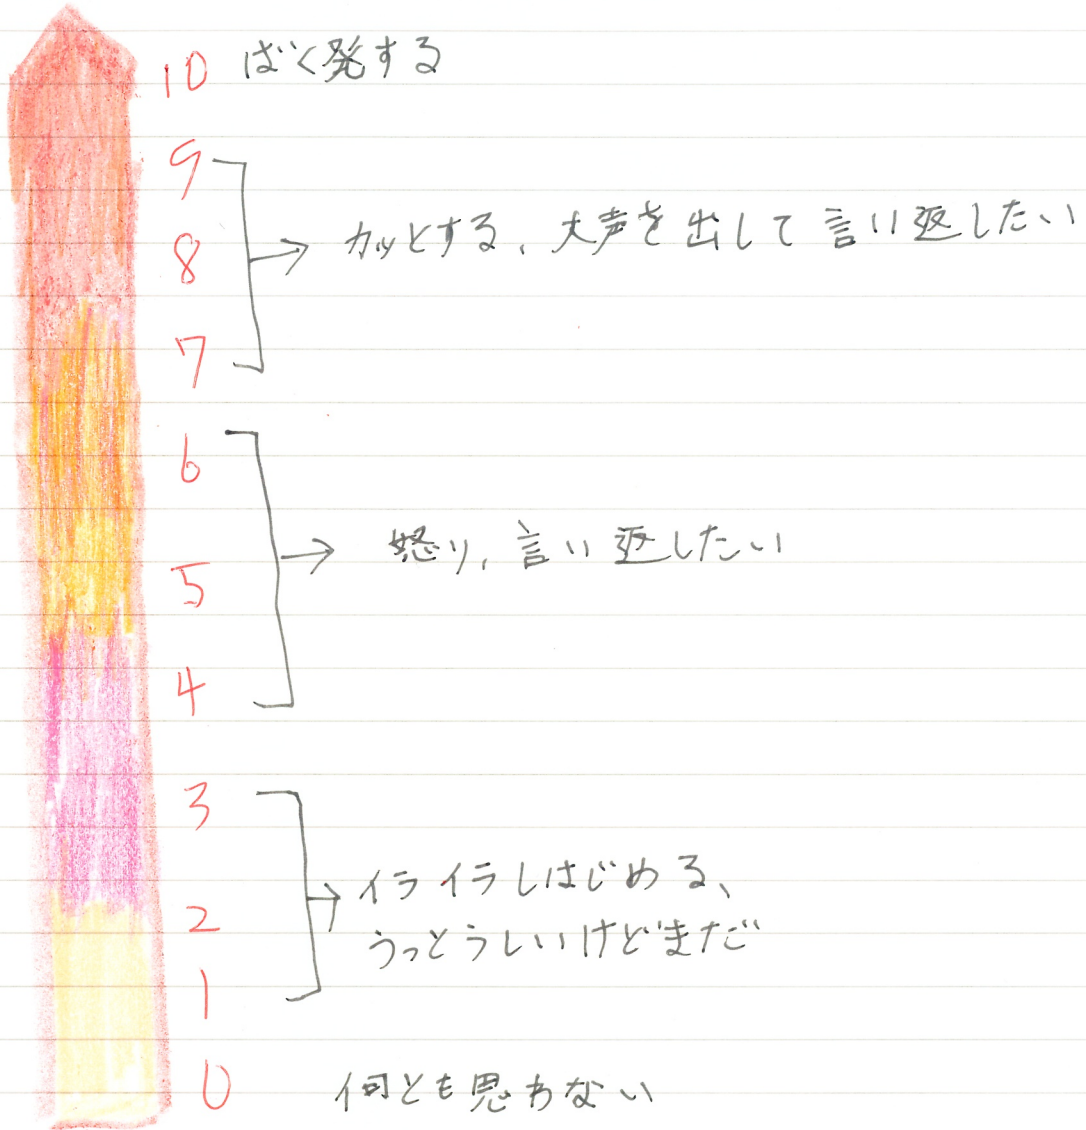 10 ばく発する
9
8 カッとする、大声を出して言い返したい
7
6
5 怒り、言い返したい
4
3
イライラしはじめる、
2
うっとうしいけどまだ
1
0 何とも思わない